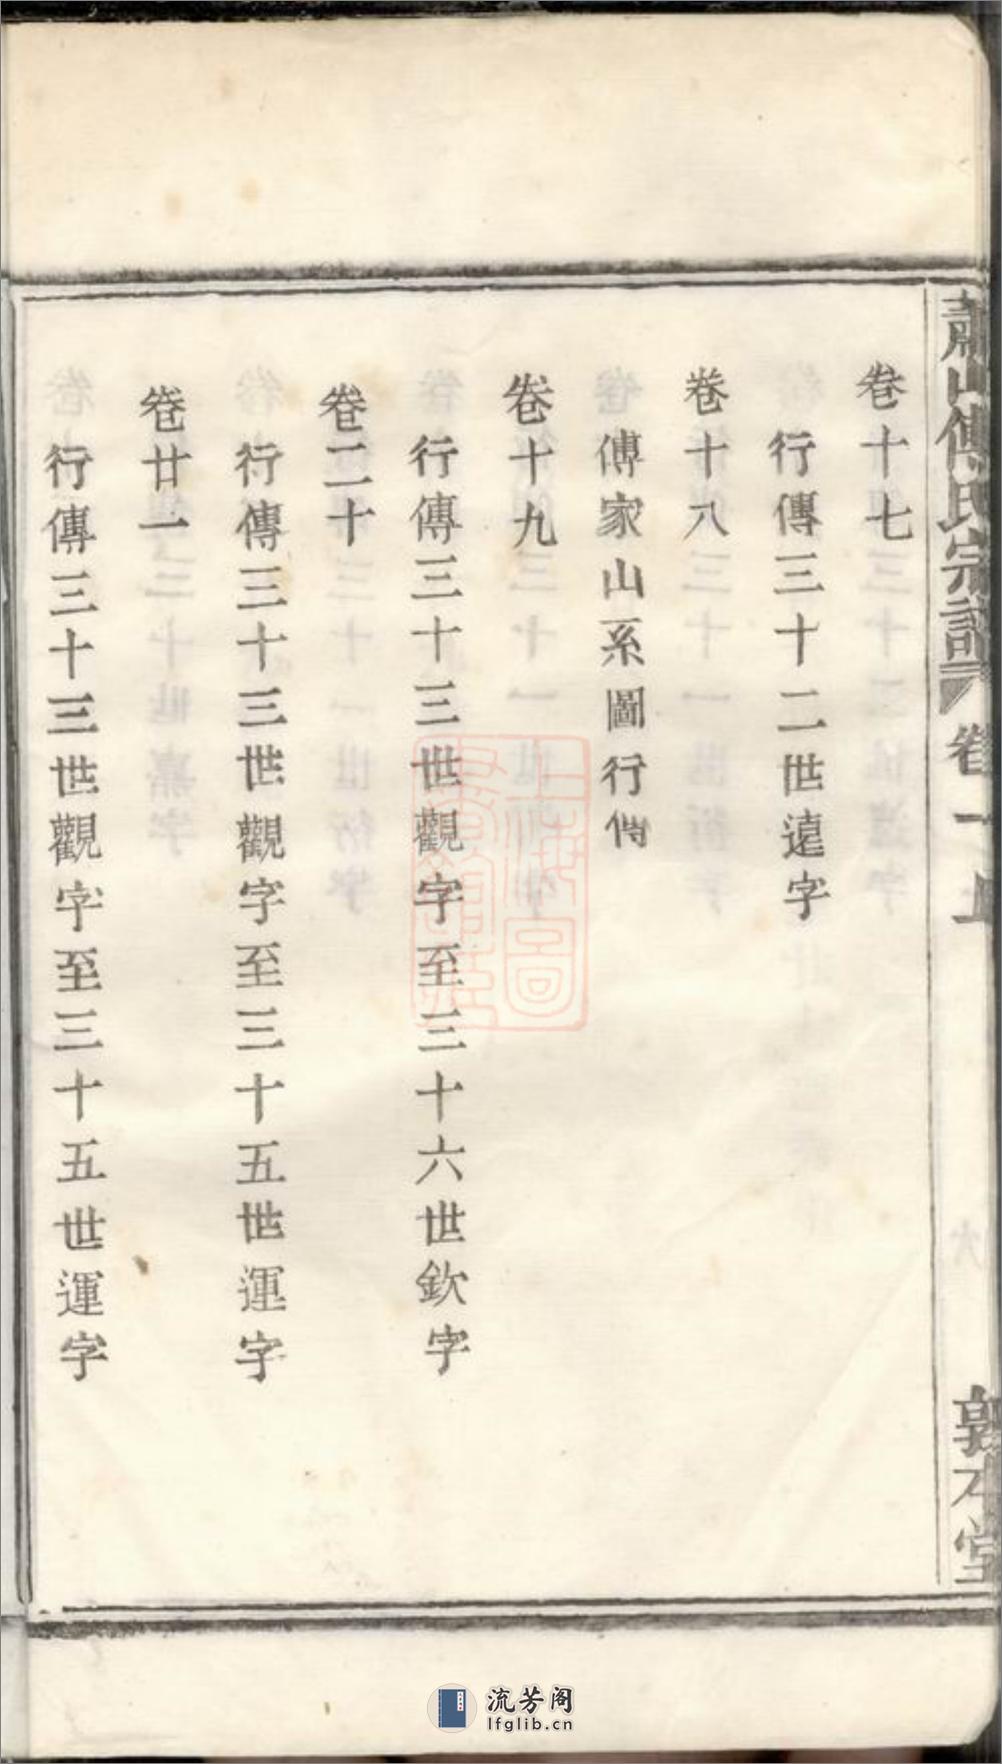 蕭山傅氏宗譜
卷一上
敦本堂
卷十七
行傳三十二世遠字
卷十八
傅家山系圖行傳
卷十九
行傳三十三世觀字至三十六世欽字
卷二十
行傳三十三世觀字至三十五世運字
卷廿一
行傳三十三世觀字至三十五世運字
上海圖書館藏
流芳阁
lfglib.cn